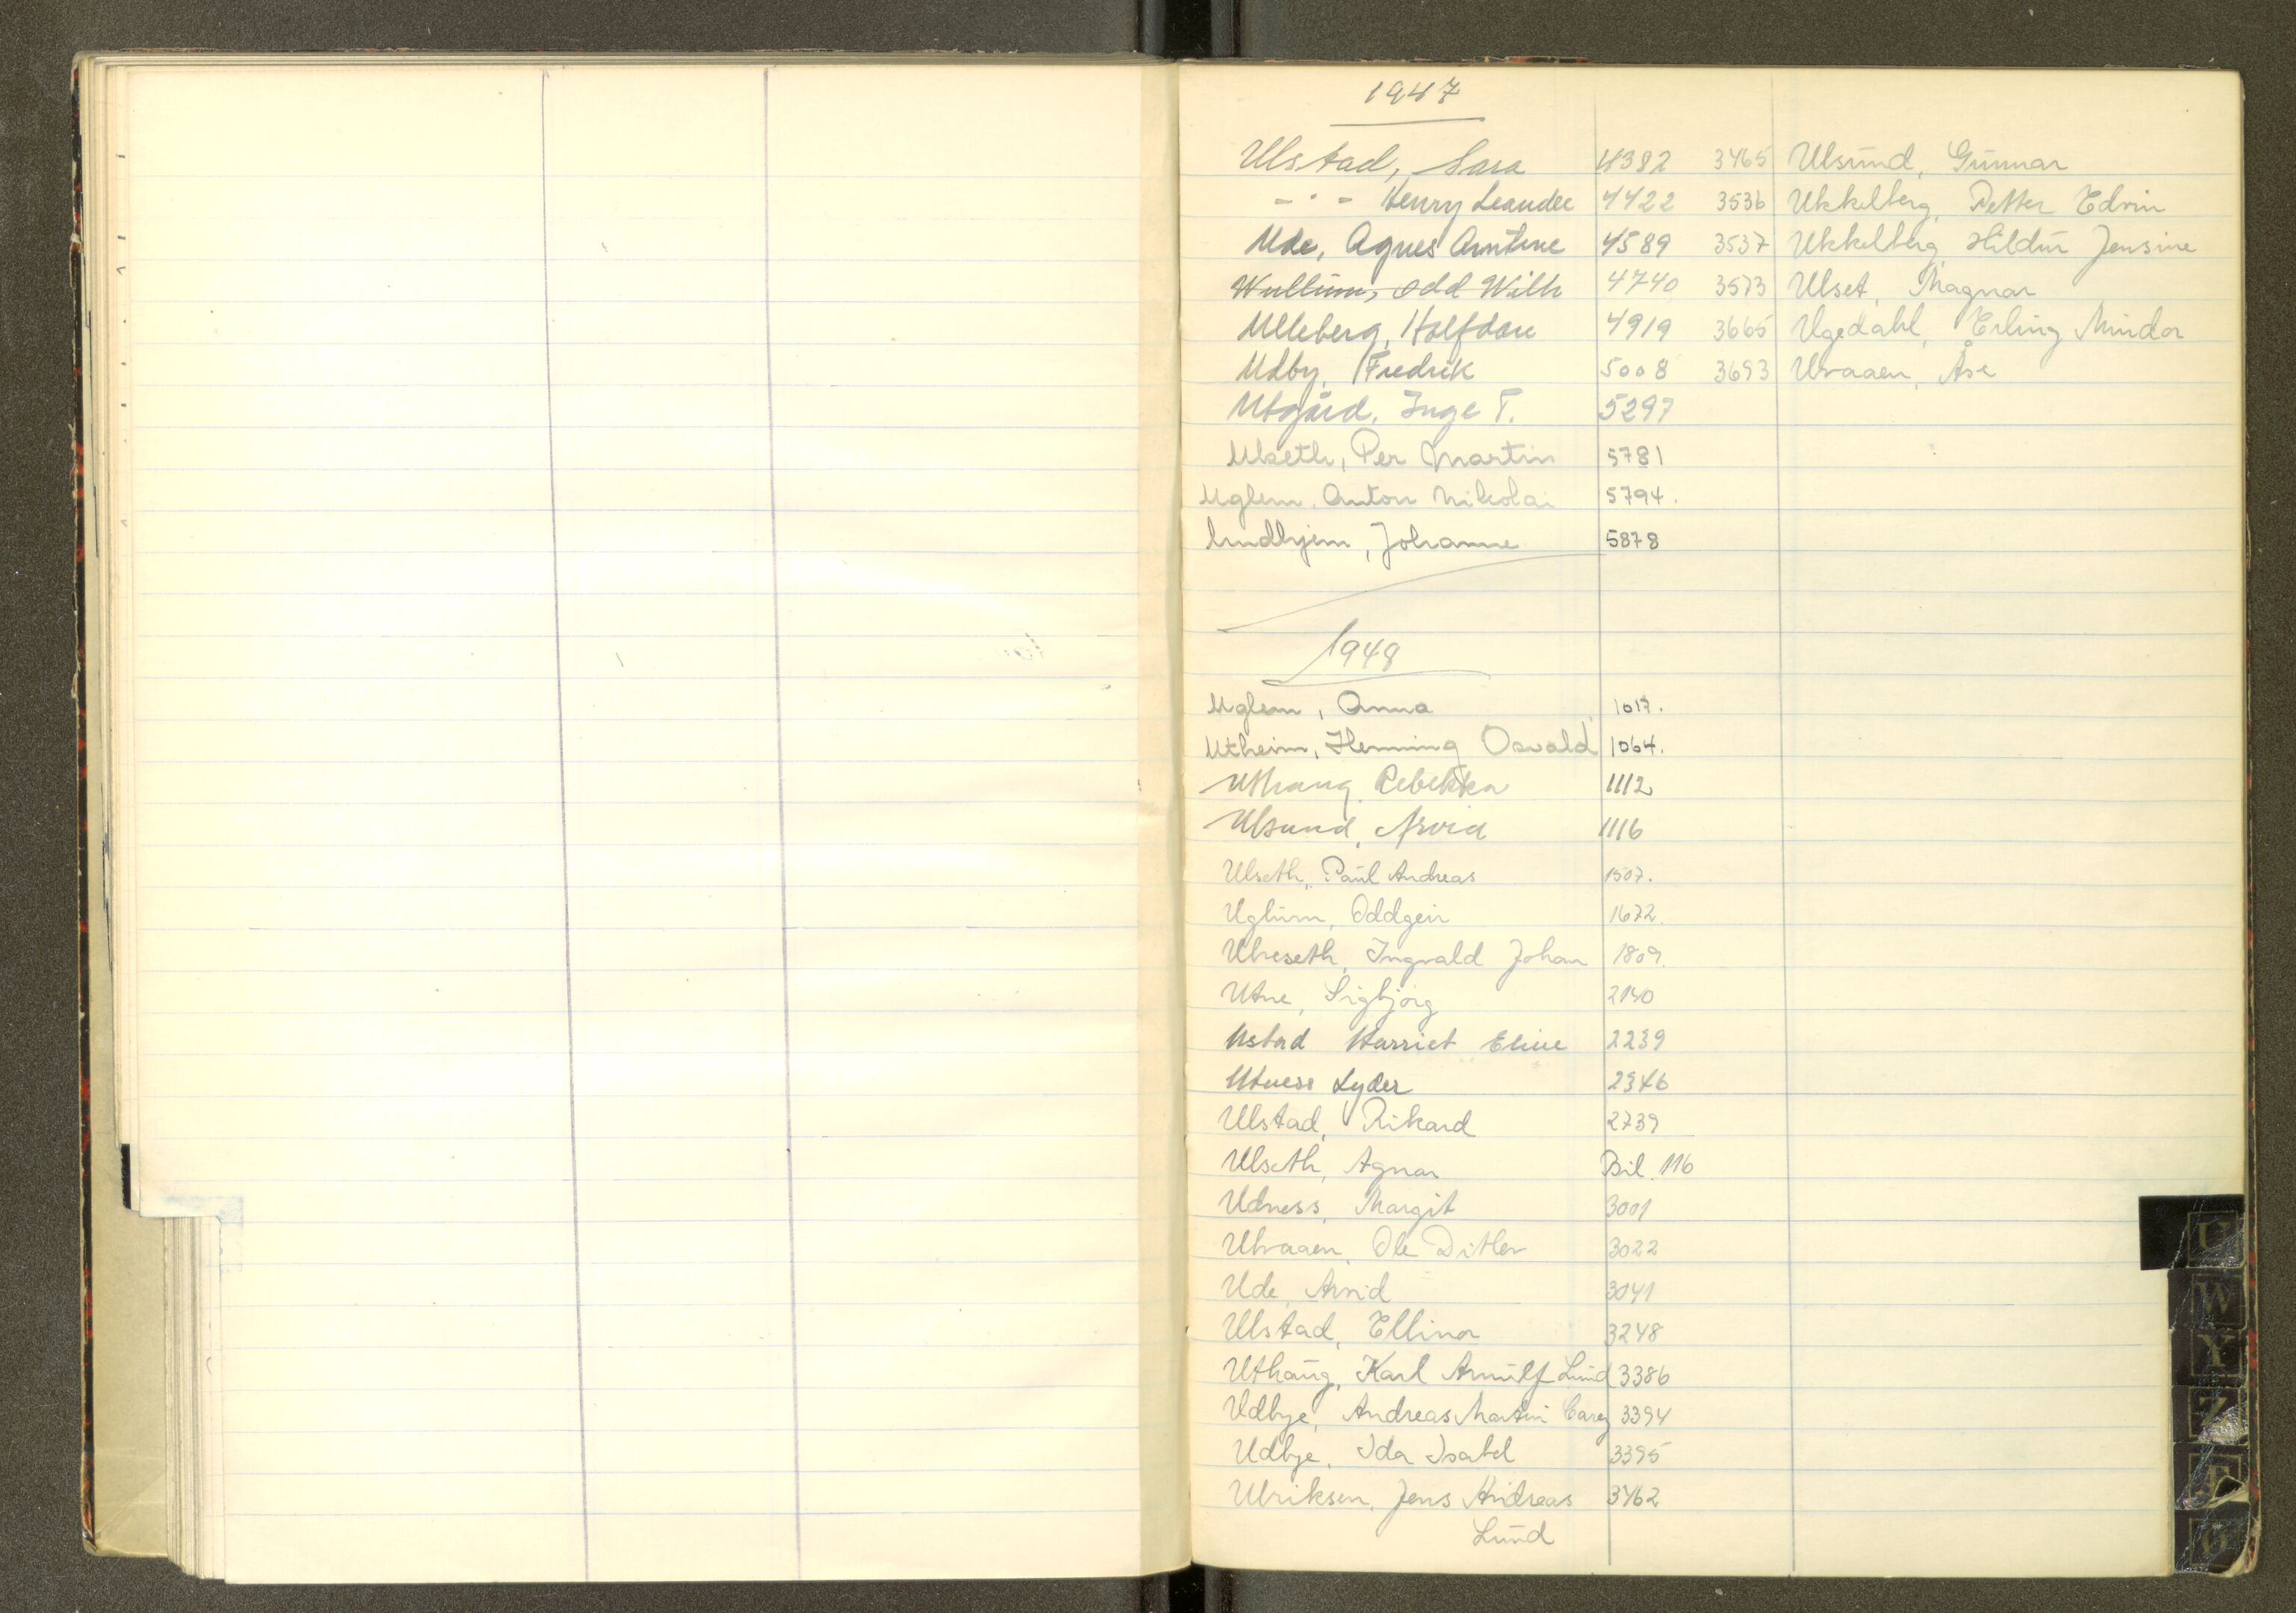 1947
Ulstad, Sara 4382 3465 Ulsund, Gunnar
- " - Henry Leander 4422 3536 Ukkelberg, Petter Edvin
Ude, Agnes Arntine 4589 3537 Ukkelberg, Hildur Jensine
Wullum, Odd Wilh 4740 3573 Ulset, Magnar
Ulleberg, Halfdan 4919 3665 Ugedahl, Erling Mindor
Udby, Fredrik 5008 3693 Ulvaaen, Åse
Utgård, Inge T. 5297
Ulseth, Per Martin 5781
Uglem, Anton Nikolai 5794.
Undhjem, Johanne 5878
1948
Uglem, Anna 1017.
Utheim, Henning Osvald 1064.
Uthaug, Rebekka 1112
Ulsund, Arvid 1116
Ulseth, Paul Andreas 1507.
Uglum, Oddgeir 1672.
Ulveseth, Ingvald Johan 1809.
Utne, Sigbjørg 2140
Ustad Harriet Eline 2239
Utness Lyder 2346
Ulstad, Rikard 2739
Ulseth, Agnar Bil. 116
Udness, Margit 3001
Ulvaaen, Ole Ditlev 3022
Ude, Arvid 3041
Ulstad, Ellinor 3248
Uthaug, Karl Arnulf Lund 3386
Udbye, Andreas Martin Carej 3394
Udbye, Ida Isabel 3395
Ulriksen, Jens Andreas 3462
Lund
U
W
Y
Z
Æ
Ø